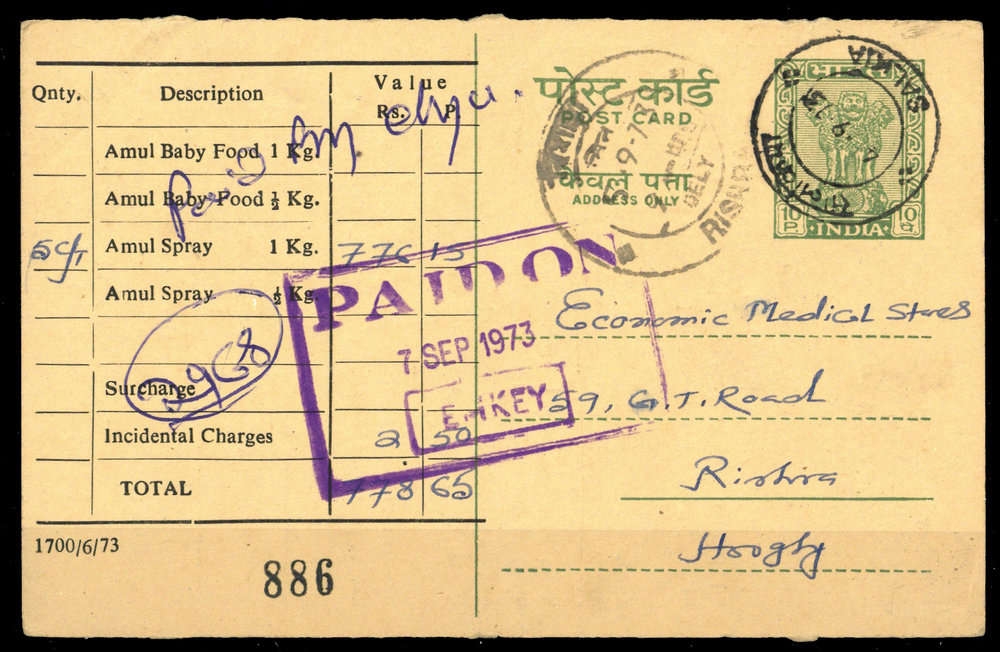 Qnty. Description Value
Rs. P.
Amul Baby Food 1 Kg.
Amul Baby Food ½ Kg.
5 C/T Amul Spray 1 Kg. 776 15
Amul Spray ½ Kg.
Surcharge
Incidental Charges 2 50
TOTAL 778 65
1700/6/73
886
PAID ON
7 SEP 1973
पोस्ट कार्ड
POST CARD
केवल पता
ADDRESS ONLY
5-9-73
DELY
RISHRA
SALKIA
भारत
10 P
INDIA
10
Economic Medical Stores
59, G.T. Road
Rishra
Hoogly